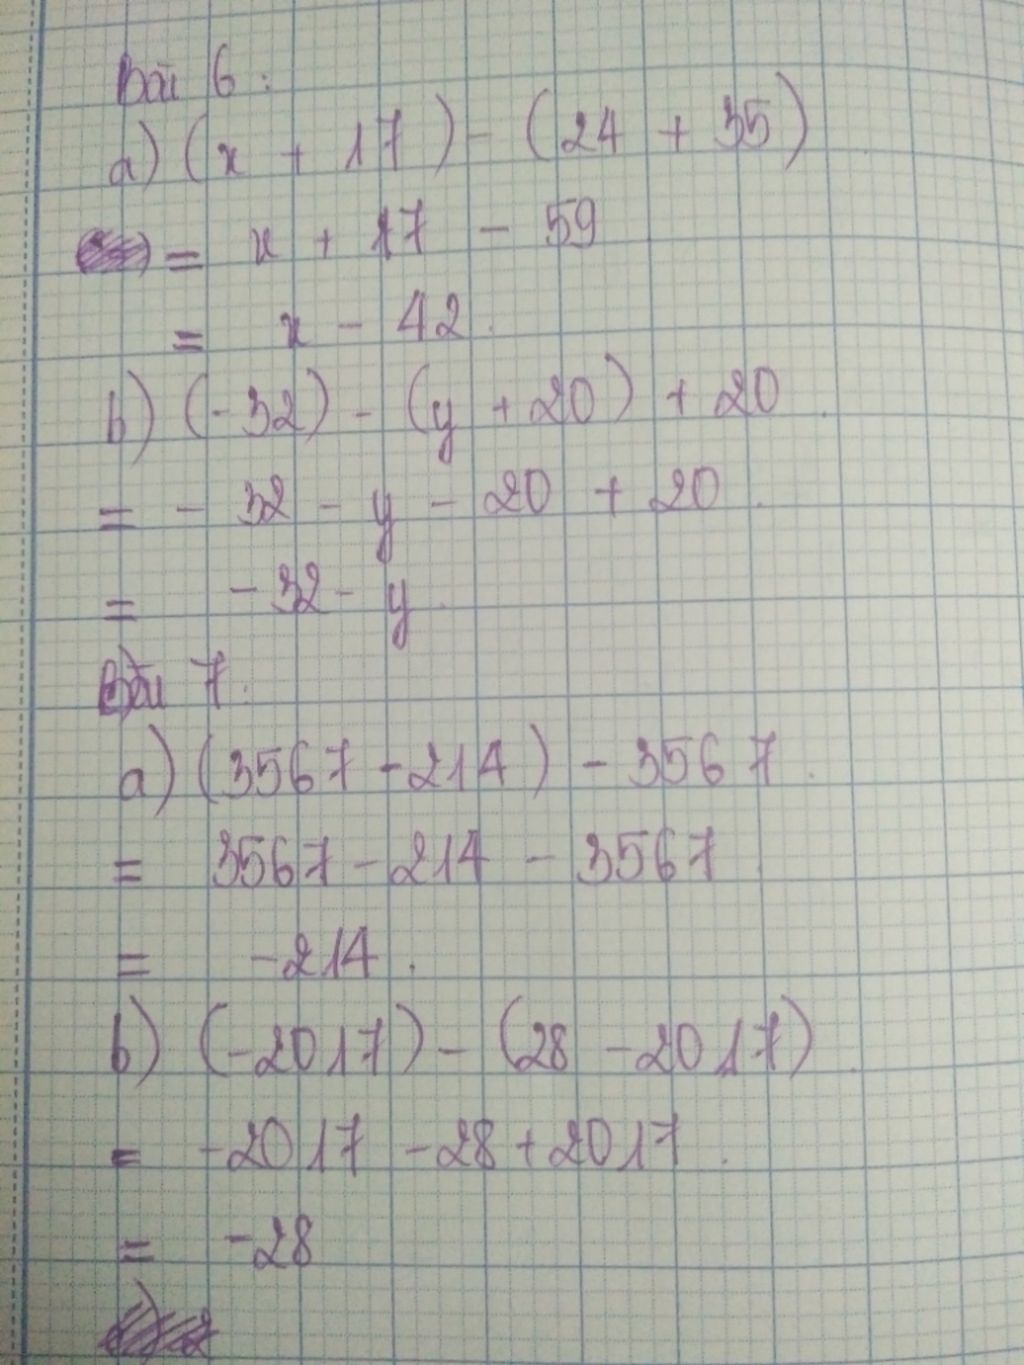 Bài 6:
a) (x + 17) - (24 + 35)
= x + 17 - 59
= x - 42.
b) (-32) - (y + 20) + 20.
= - 32 - y - 20 + 20.
= -32 - y.
Bài 7.
a) (3567 - 214) - 3567.
= 3567 - 214 - 3567
= -214.
b) (-2017) - (28 - 2017).
= -2017 - 28 + 2017.
= -28